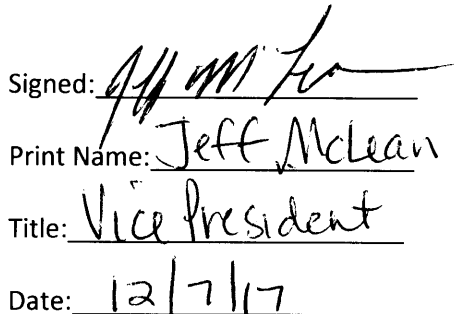 Signed: Jeff McLean
Print Name: Jeff McLean
Title: Vice President
Date: 12/7/17